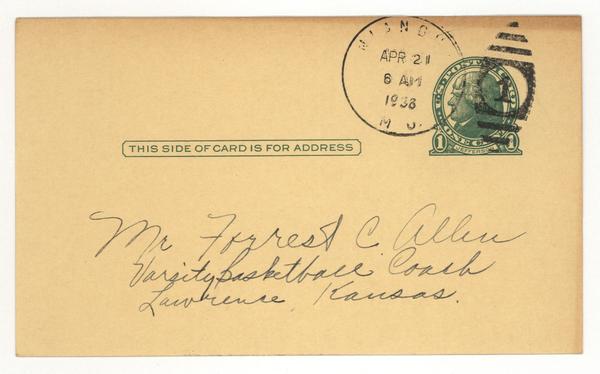 NIANGUA
APR 21
6 AM
1938
MO.
1
U.S. POSTAGE
ONE CENT
JEFFERSON
1 1
THIS SIDE OF CARD IS FOR ADDRESS
Mr Forrest C. Allen
Varsity Basketball Coach
Lawrence, Kansas.